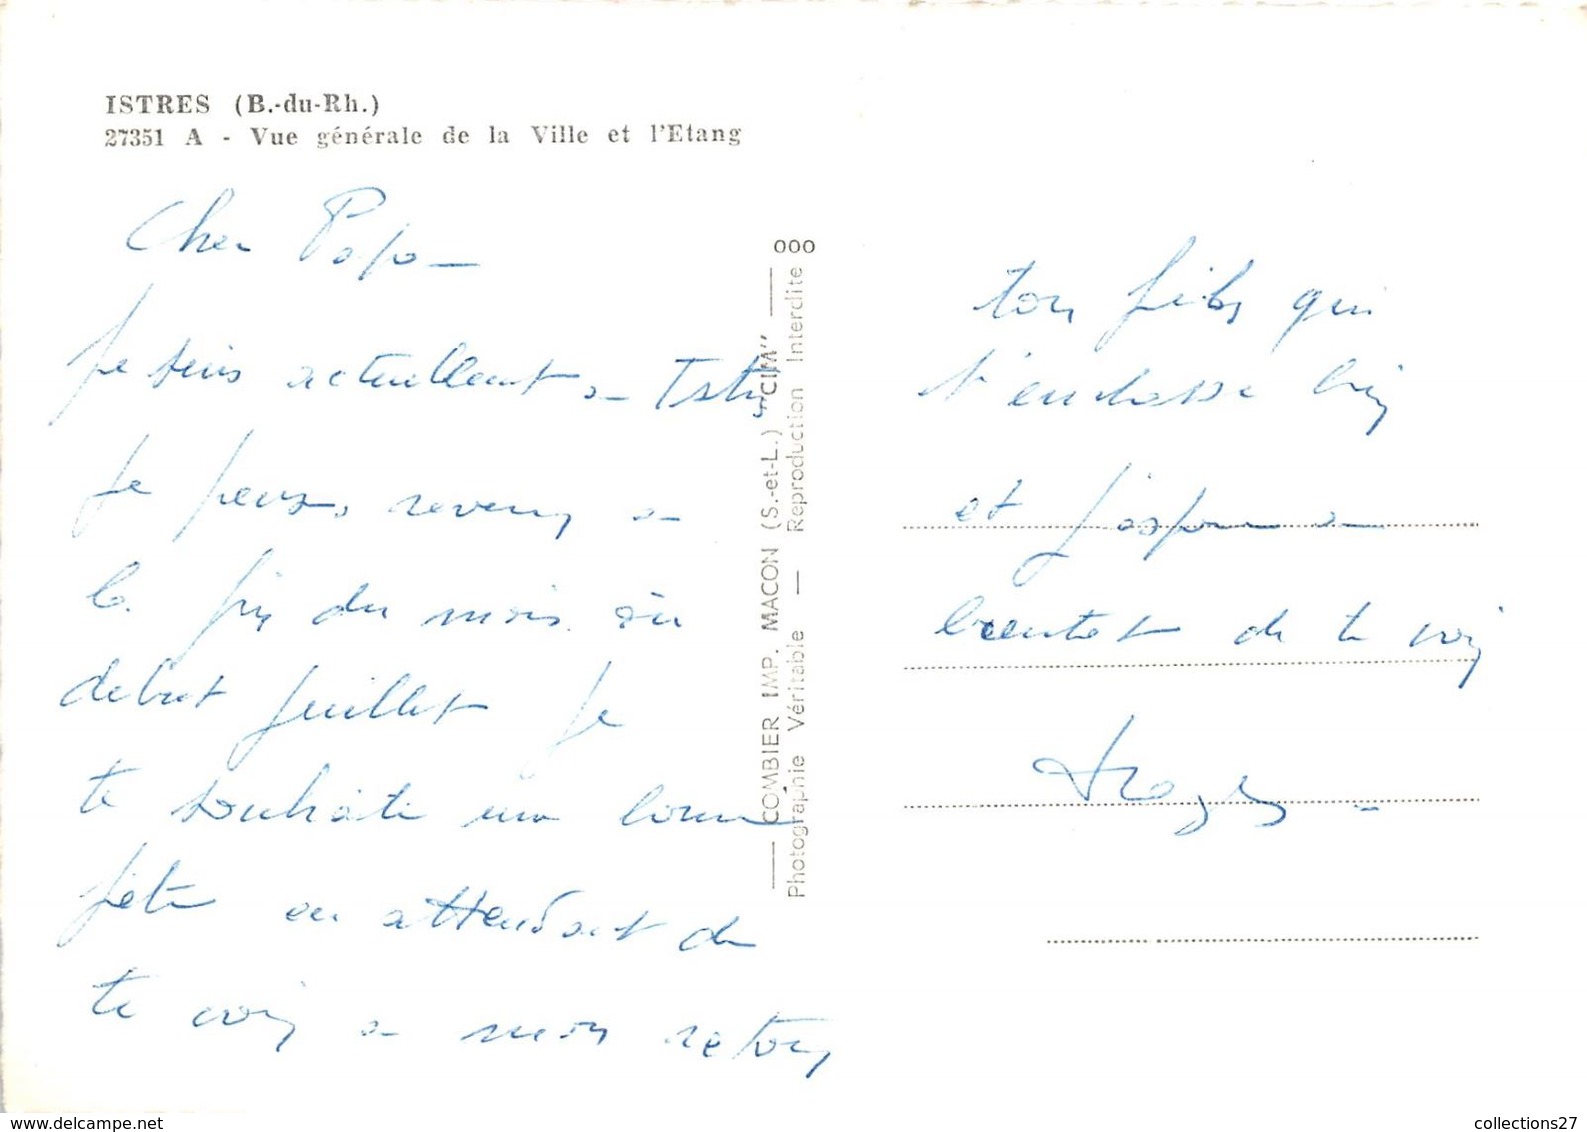 ISTRES (B.-du-Rh.)
27351 A - Vue générale de la Ville et l'Etang
Cher Papa
Je suis actuellement a Istres
Je pense revenir a
la fin du mois ou
debut juillet je
te souhaite une bonne
fête en attendant de
te voir a mon retour
COMBIER IMP. MACON (S.-et-L.) "CIM"
Photographie Véritable — Reproduction Interdite
000
ton fils qui
t'embrasse bien
et j'espère a
bientot de te voir
collections27